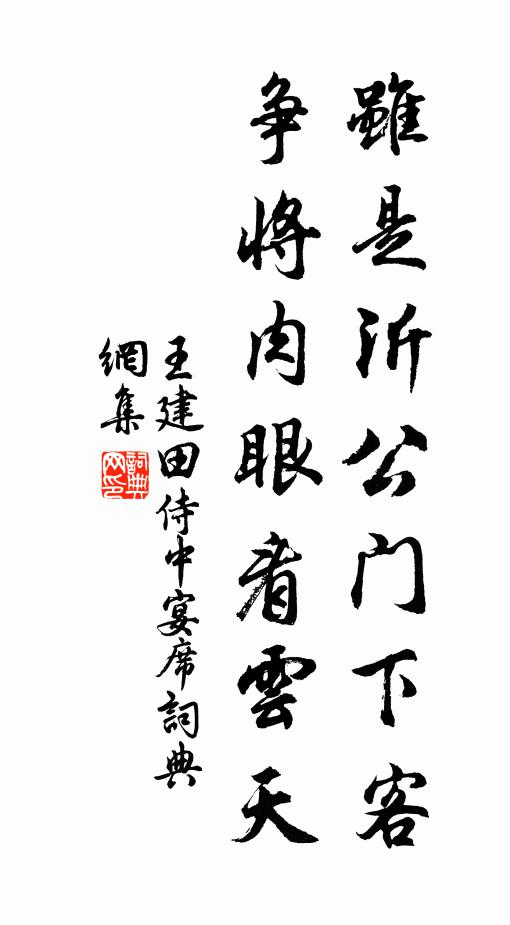 雖是沂公門下客
争將肉眼看雲天
王建田侍中宴席詞典
網集
詞典網印